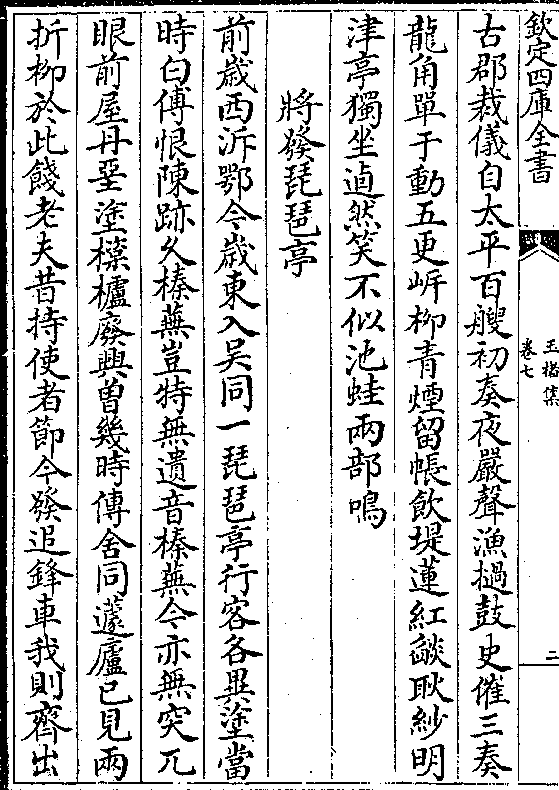 欽定四庫全書
玉楮集
卷七
二
古郡裁儀自太平百艘初奏夜嚴聲漁撾鼓史催三奏
龍角單于動五更岍柳青煙留帳飲堤蓮紅燄耿紗明
津亭獨坐逌然笑不似池蛙兩部鳴
將發琵琶亭
前歲西泝鄂今歲東入吳同一琵琶亭行客各異塗當
時白傅恨陳跡久榛蕪豈特無遺音榛蕪今亦無突兀
眼前屋丹堊塗橖櫨廢興曽幾時傳舍同蘧廬已見兩
折柳於此餞老夫昔持使者節今發追鋒車我則齊出